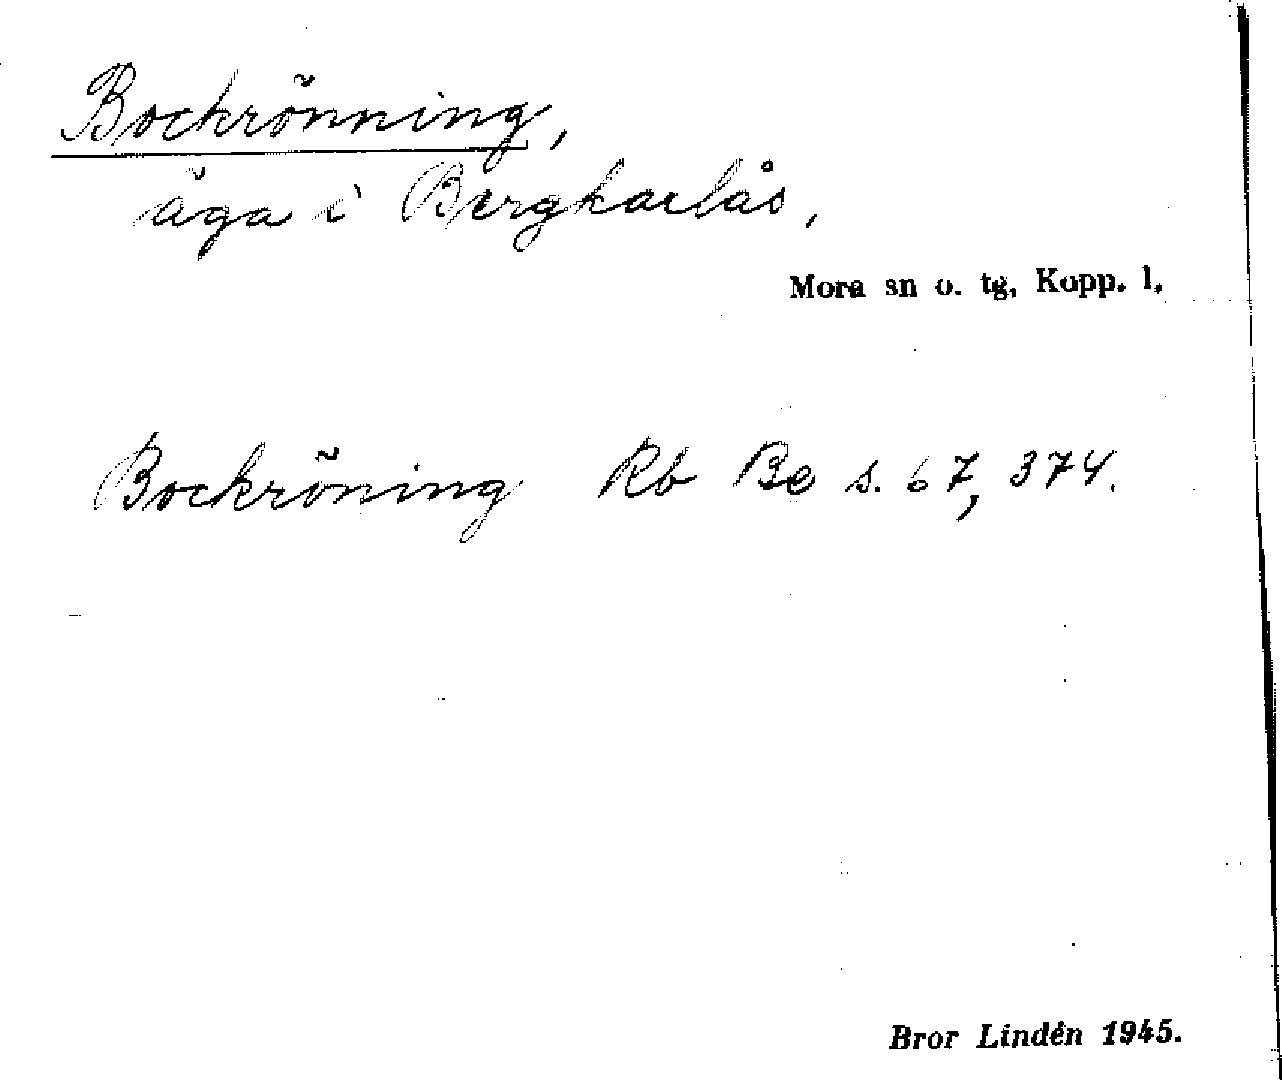 Bockrönning,
äga i Bergkarlås,
Mora sn o. tg, Kopp. l.
Bockröning Rb Be s. 67, 374.
Bror Lindén 1945.